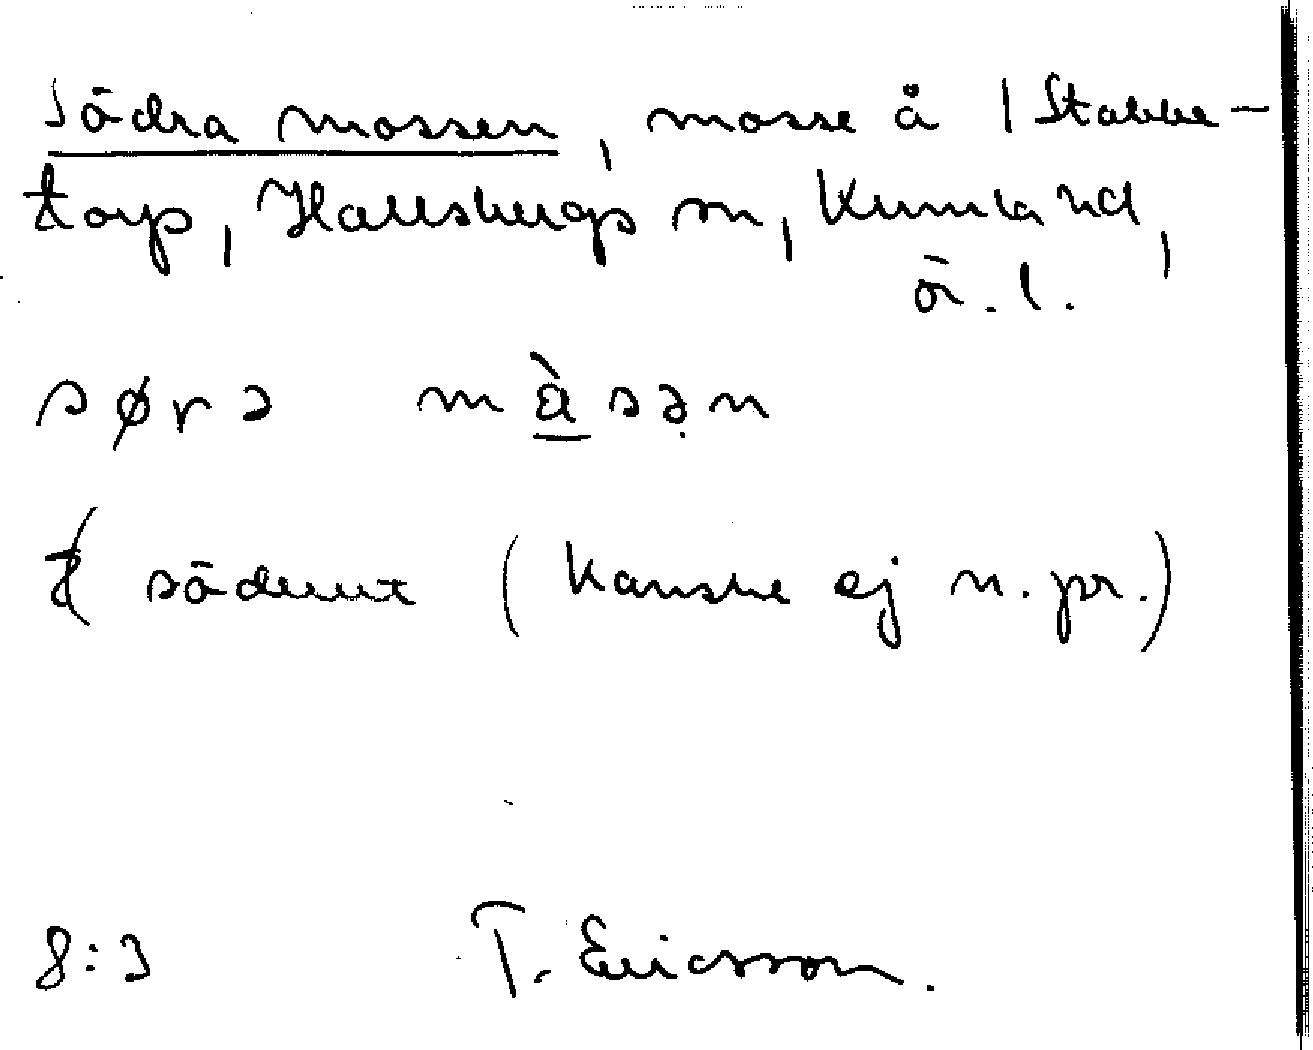 Södra mossen, mosse å | Stabbe-
torp, Hallsbergs sn, Kumla hd,
ör. l.
sørə màsən
söderut (Kanske ej n. pr.)
8:3 T. Ericsson.